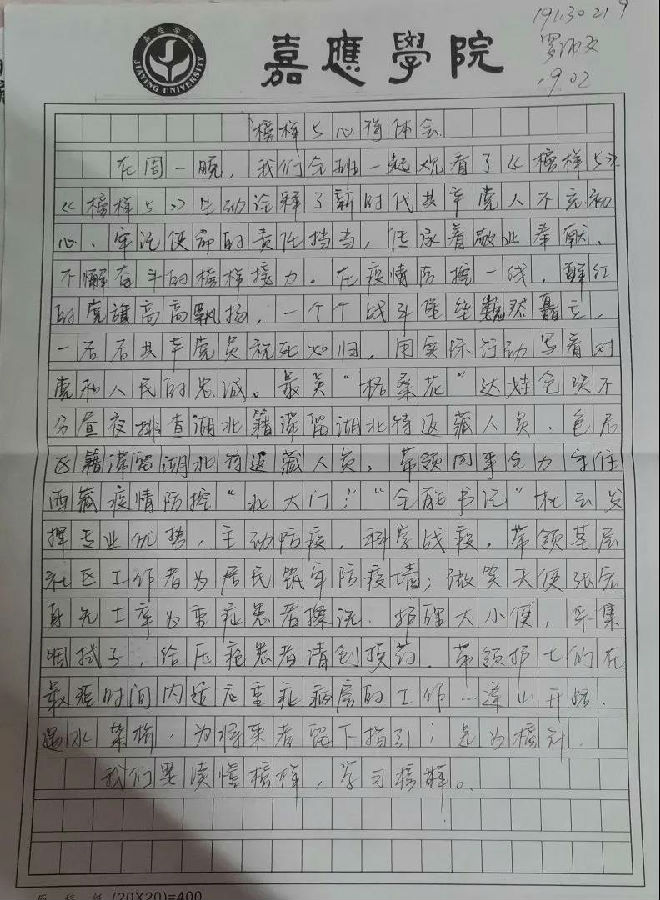 1913021 9
1902
嘉應學院
嘉應學院
JIAYING UNIVERSITY
《榜样5》心得体会
在周一晚，我们全班一起观看了《榜样5》
《榜样5》生动诠释了新时代共产党人不忘初
心、牢记使命的责任担当，传承着敬业奉献、
不懈奋斗的榜样接力。在疫情防控一线，鲜红
的党旗高高飘扬，一个个战斗堡垒巍然矗立，
一名名共产党员视死如归，用实际行动写着对
党和人民的忠诚。最美“格桑花”达娃仓决不
分昼夜排查湖北籍滞留湖北待返藏人员、
区籍滞留湖北待返藏人员，带领同事全力守住
西藏疫情防控“北大门！”“全能书记”杜云发
挥专业优势，主动防疫，科学战疫，带领基层
社区工作者为居民筑牢防疫墙；微笑天使张
身先士卒为重症患者擦洗、护理大小便，采集
咽拭子，给压疮患者清创换药，带领护士们在
最短时间内适应重症病房的工作…逢山开路，
遇水架桥，为将来者留下指引；是为榜样。
我们要读懂榜样，学习榜样。
(20×20)=400